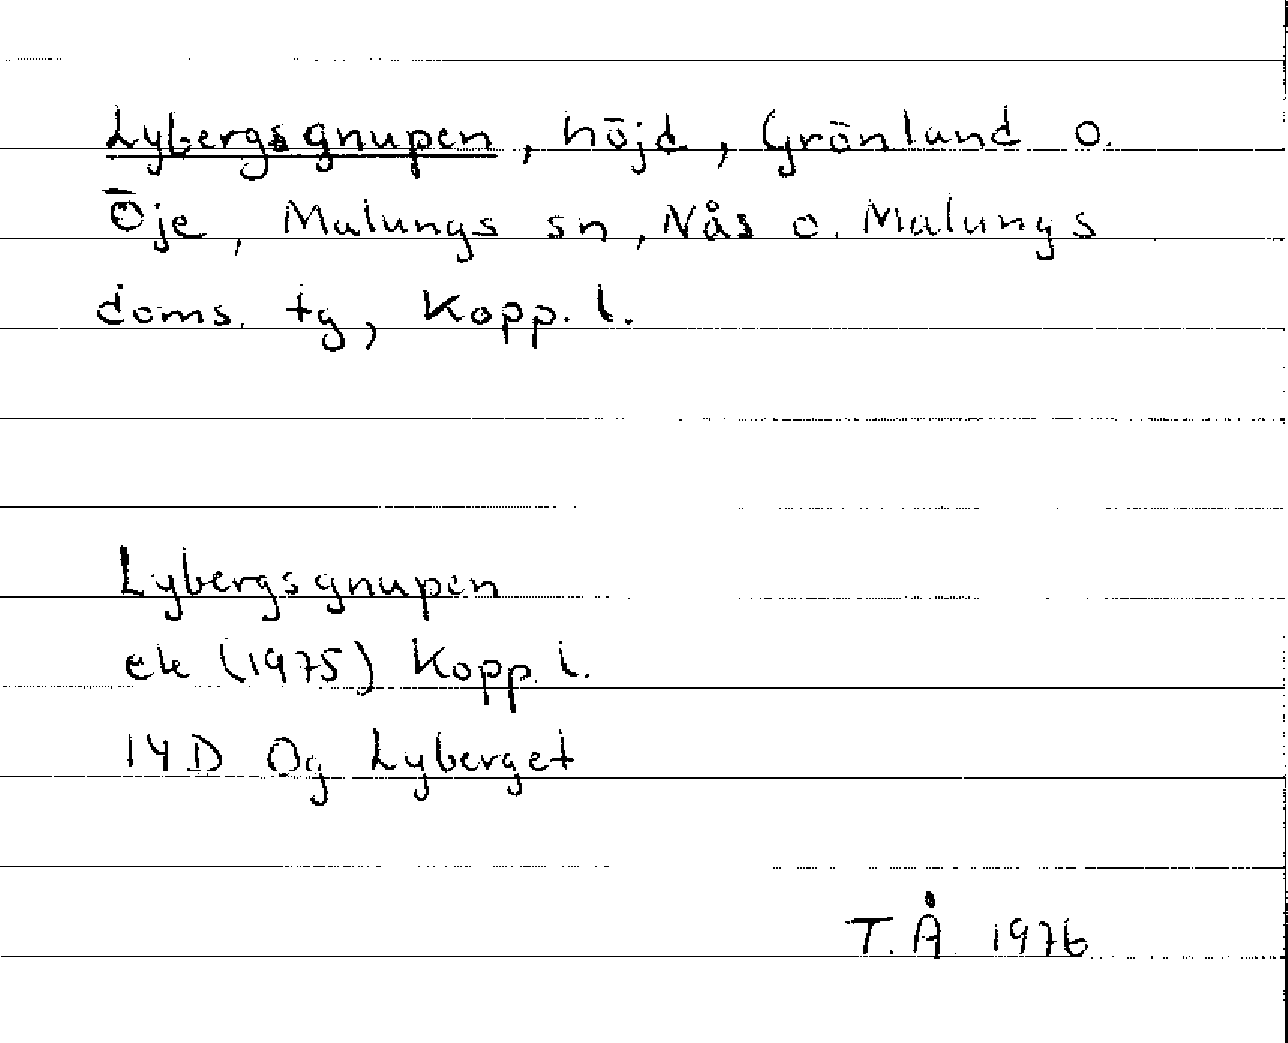 Lybergsgnupen, höjd, Grönland o.
Öje, Malungs sn, Nås o. Malungs
doms. tg, Kopp. l.
Lybergsgnupen
ek (1975) Kopp. l.
14D 0g Lyberget
T.Å. 1976